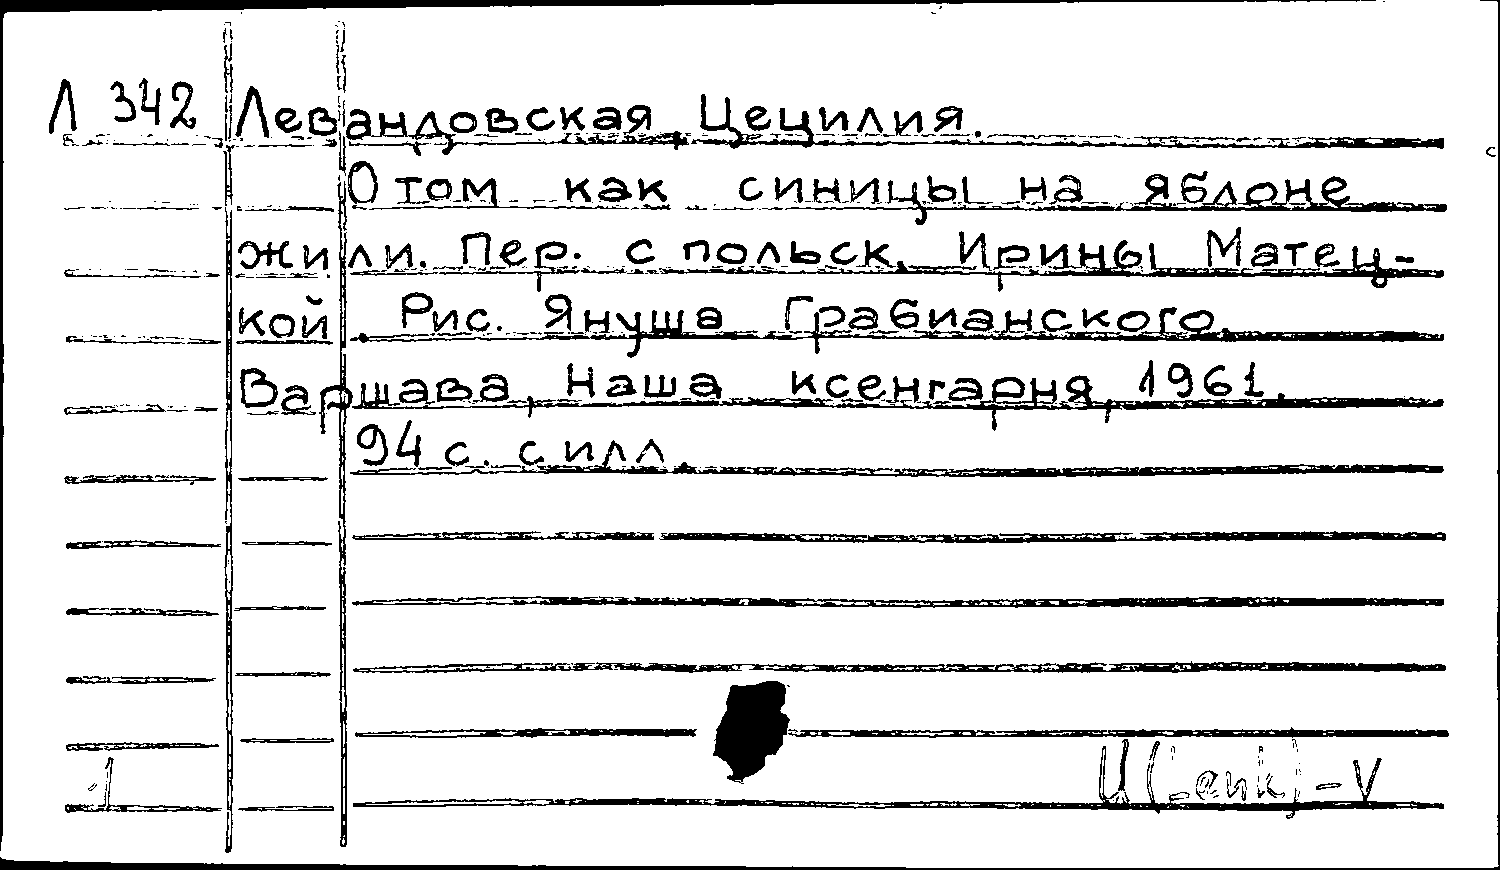 Л 342 Левандовская, Цецилия.
О том как синицы на яблоне
жили. Пер. с польск. Ирины Матец-
кой. Рис. Януша Грабианского.
Варшава, Наша ксенгарня, 1961.
94 с. с илл.
1